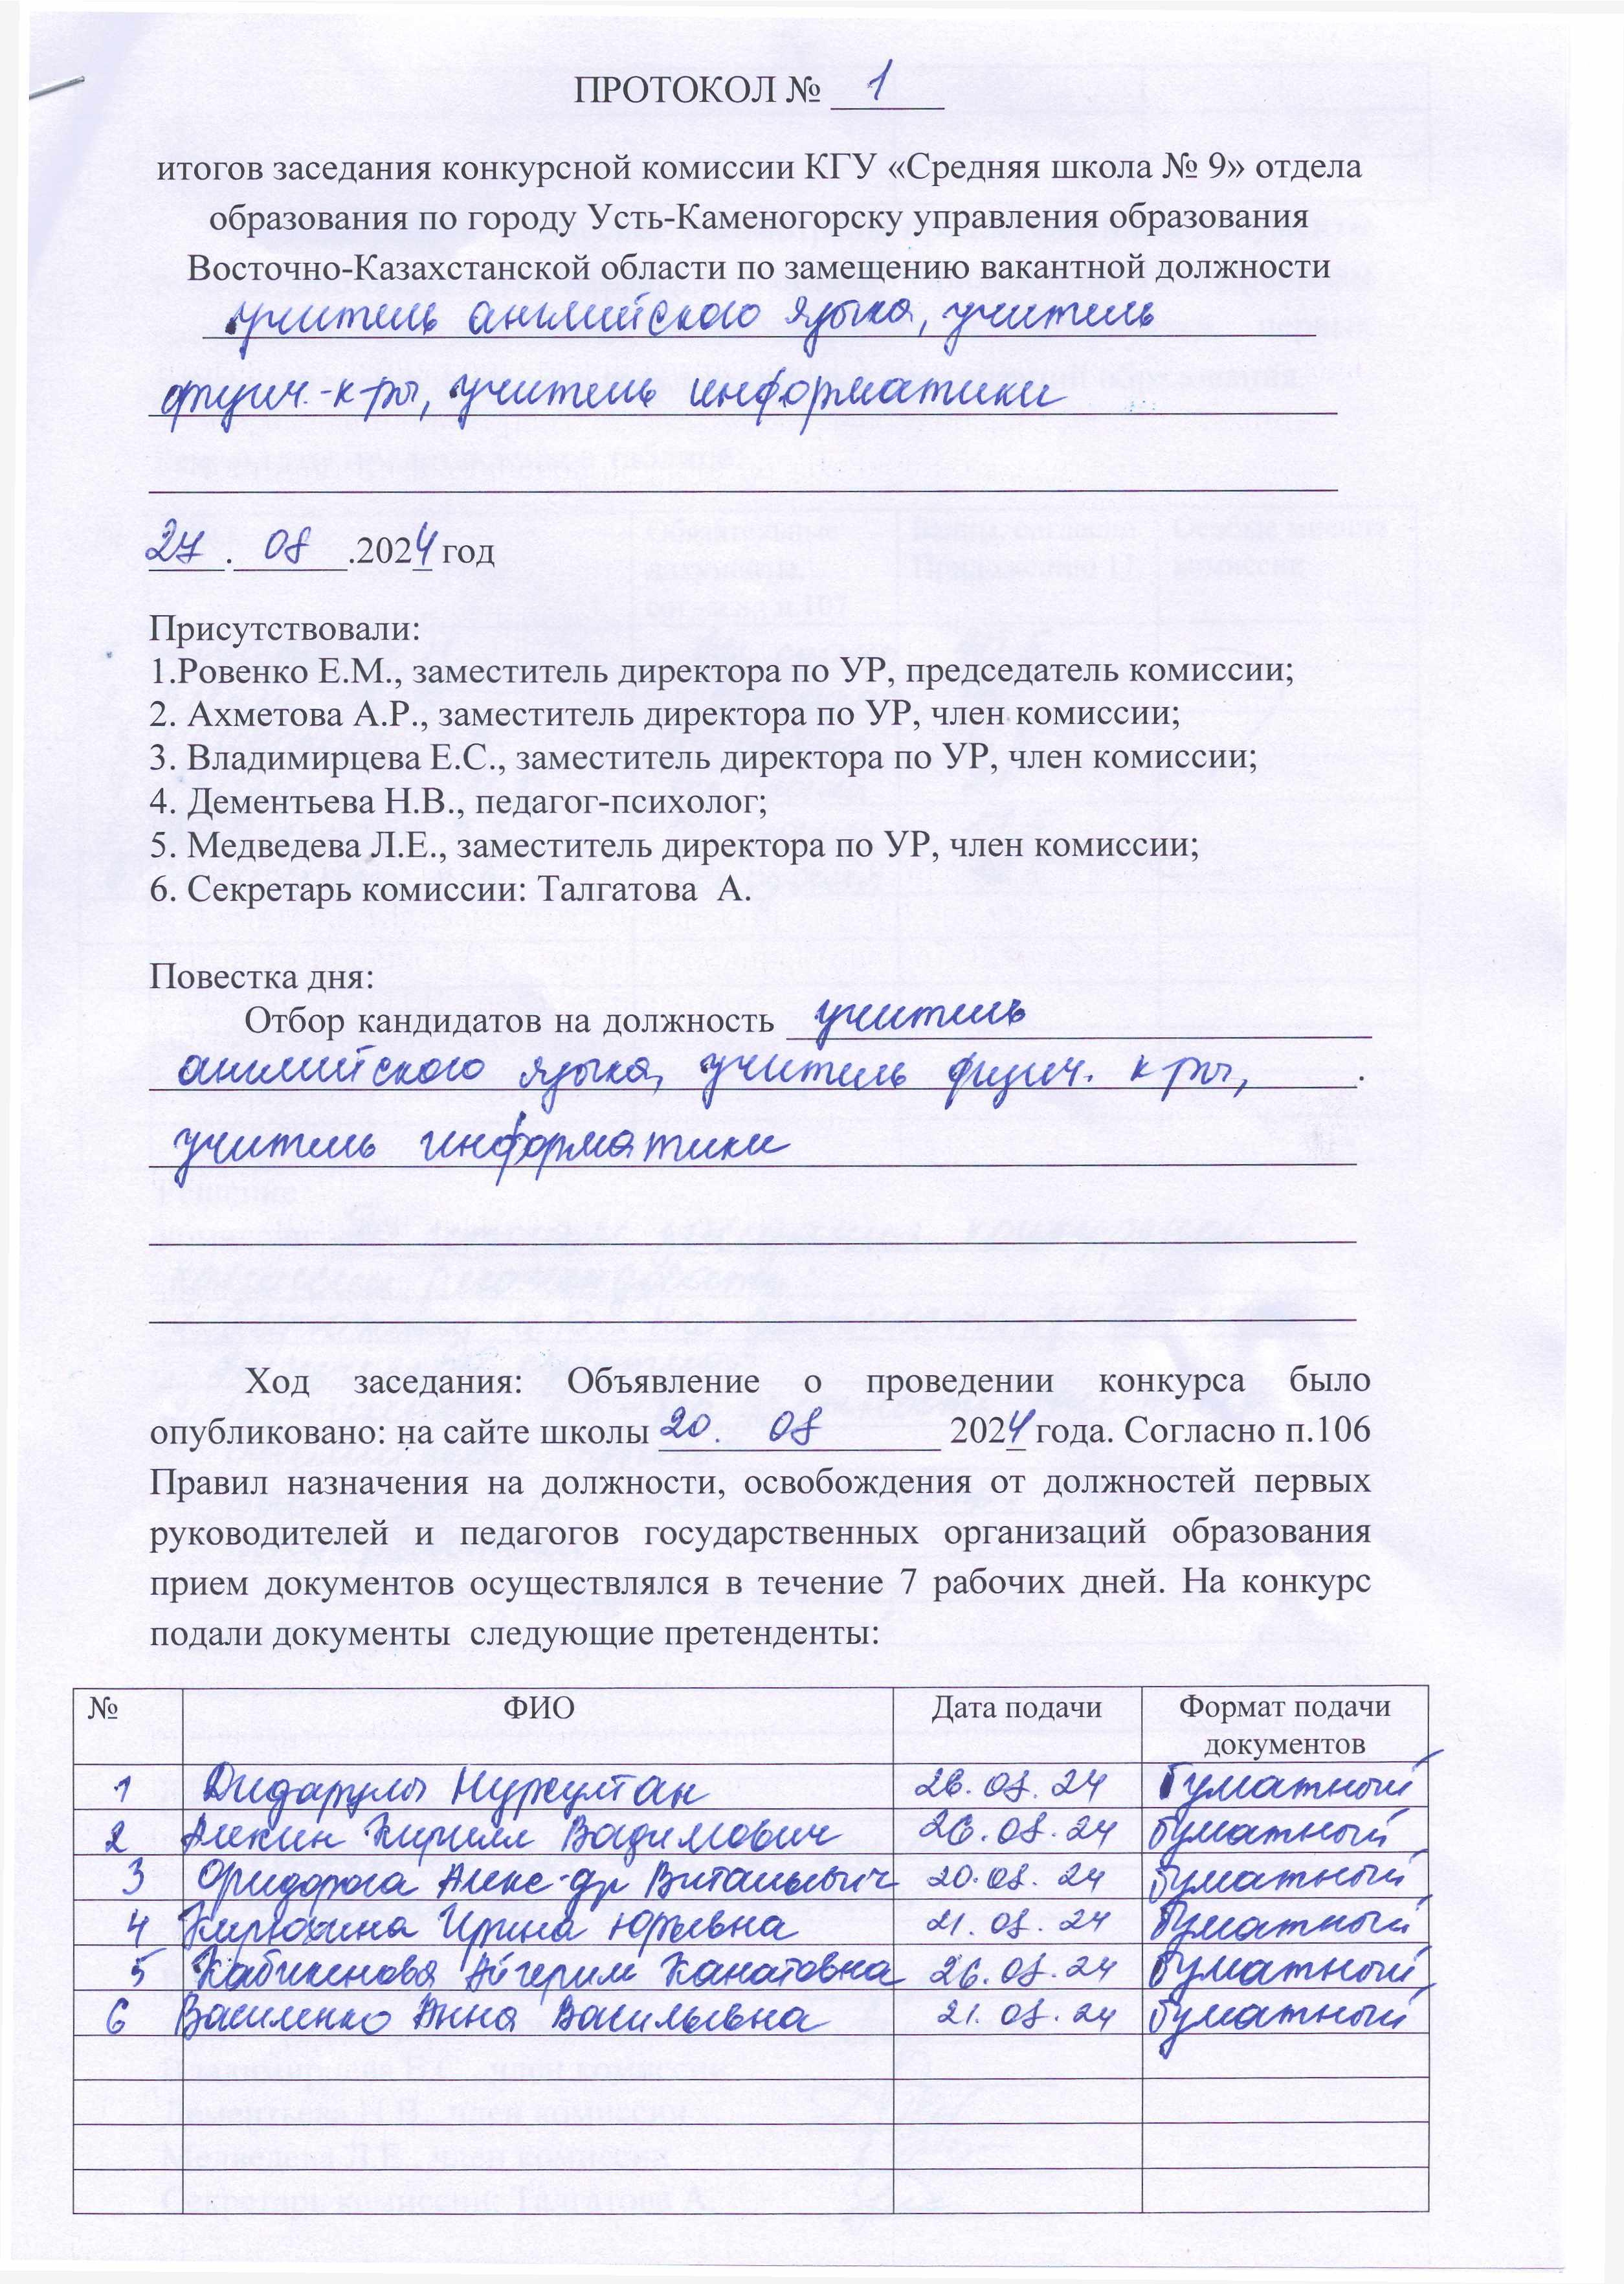 ПРОТОКОЛ № 1
итогов заседания конкурсной комиссии КГУ «Средняя школа № 9» отдела
образования по городу Усть-Каменогорску управления образования
Восточно-Казахстанской области по замещению вакантной должности
учитель английского языка, учитель
физич.-к-ры, учитель информатики
27.08.2024 год
Присутствовали:
1.Ровенко Е.М., заместитель директора по УР, председатель комиссии;
2. Ахметова А.Р., заместитель директора по УР, член комиссии;
3. Владимирцева Е.С., заместитель директора по УР, член комиссии;
4. Дементьева Н.В., педагог-психолог;
5. Медведева Л.Е., заместитель директора по УР, член комиссии;
6. Секретарь комиссии: Талгатова А.
Повестка дня:
Отбор кандидатов на должность учитель
английского языка, учитель физич. к-ры,.
учитель информатики
Ход заседания: Объявление о проведении конкурса было
опубликовано: на сайте школы 20. 08 2024 года. Согласно п.106
Правил назначения на должности, освобождения от должностей первых
руководителей и педагогов государственных организаций образования
прием документов осуществлялся в течение 7 рабочих дней. На конкурс
подали документы следующие претенденты:
№ ФИО Дата подачи Формат подачи
документов
1 Дидарулы Нурсултан 26.08.24 бумажный
2 Кирилл Вадимович 26.08.24 бумажный
3 Фридорога Алекс-др Витальевич 20.08.24 бумажный
4 Кирюхина Ирина Юрьевна 21.08.24 бумажный
5 Кабикенова Айгерим Канатовна 26.08.24 бумажный
6 Василенко Анна Васильевна 21.08.24 бумажный